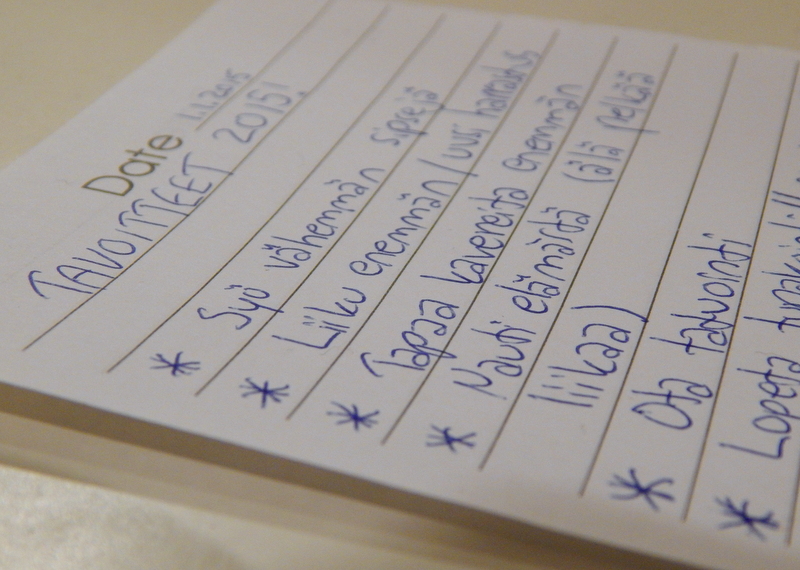 Date 1.1.2015
TAVOITTEET 2015!
* Syö vähemmän sipsejä
* Liiku enemmän / uusi harrastus
* Tapaa kavereita enemmän
* Nauti elämästä (älä pelkää
liikaa)
* Ota talvorinti
* Lopeta